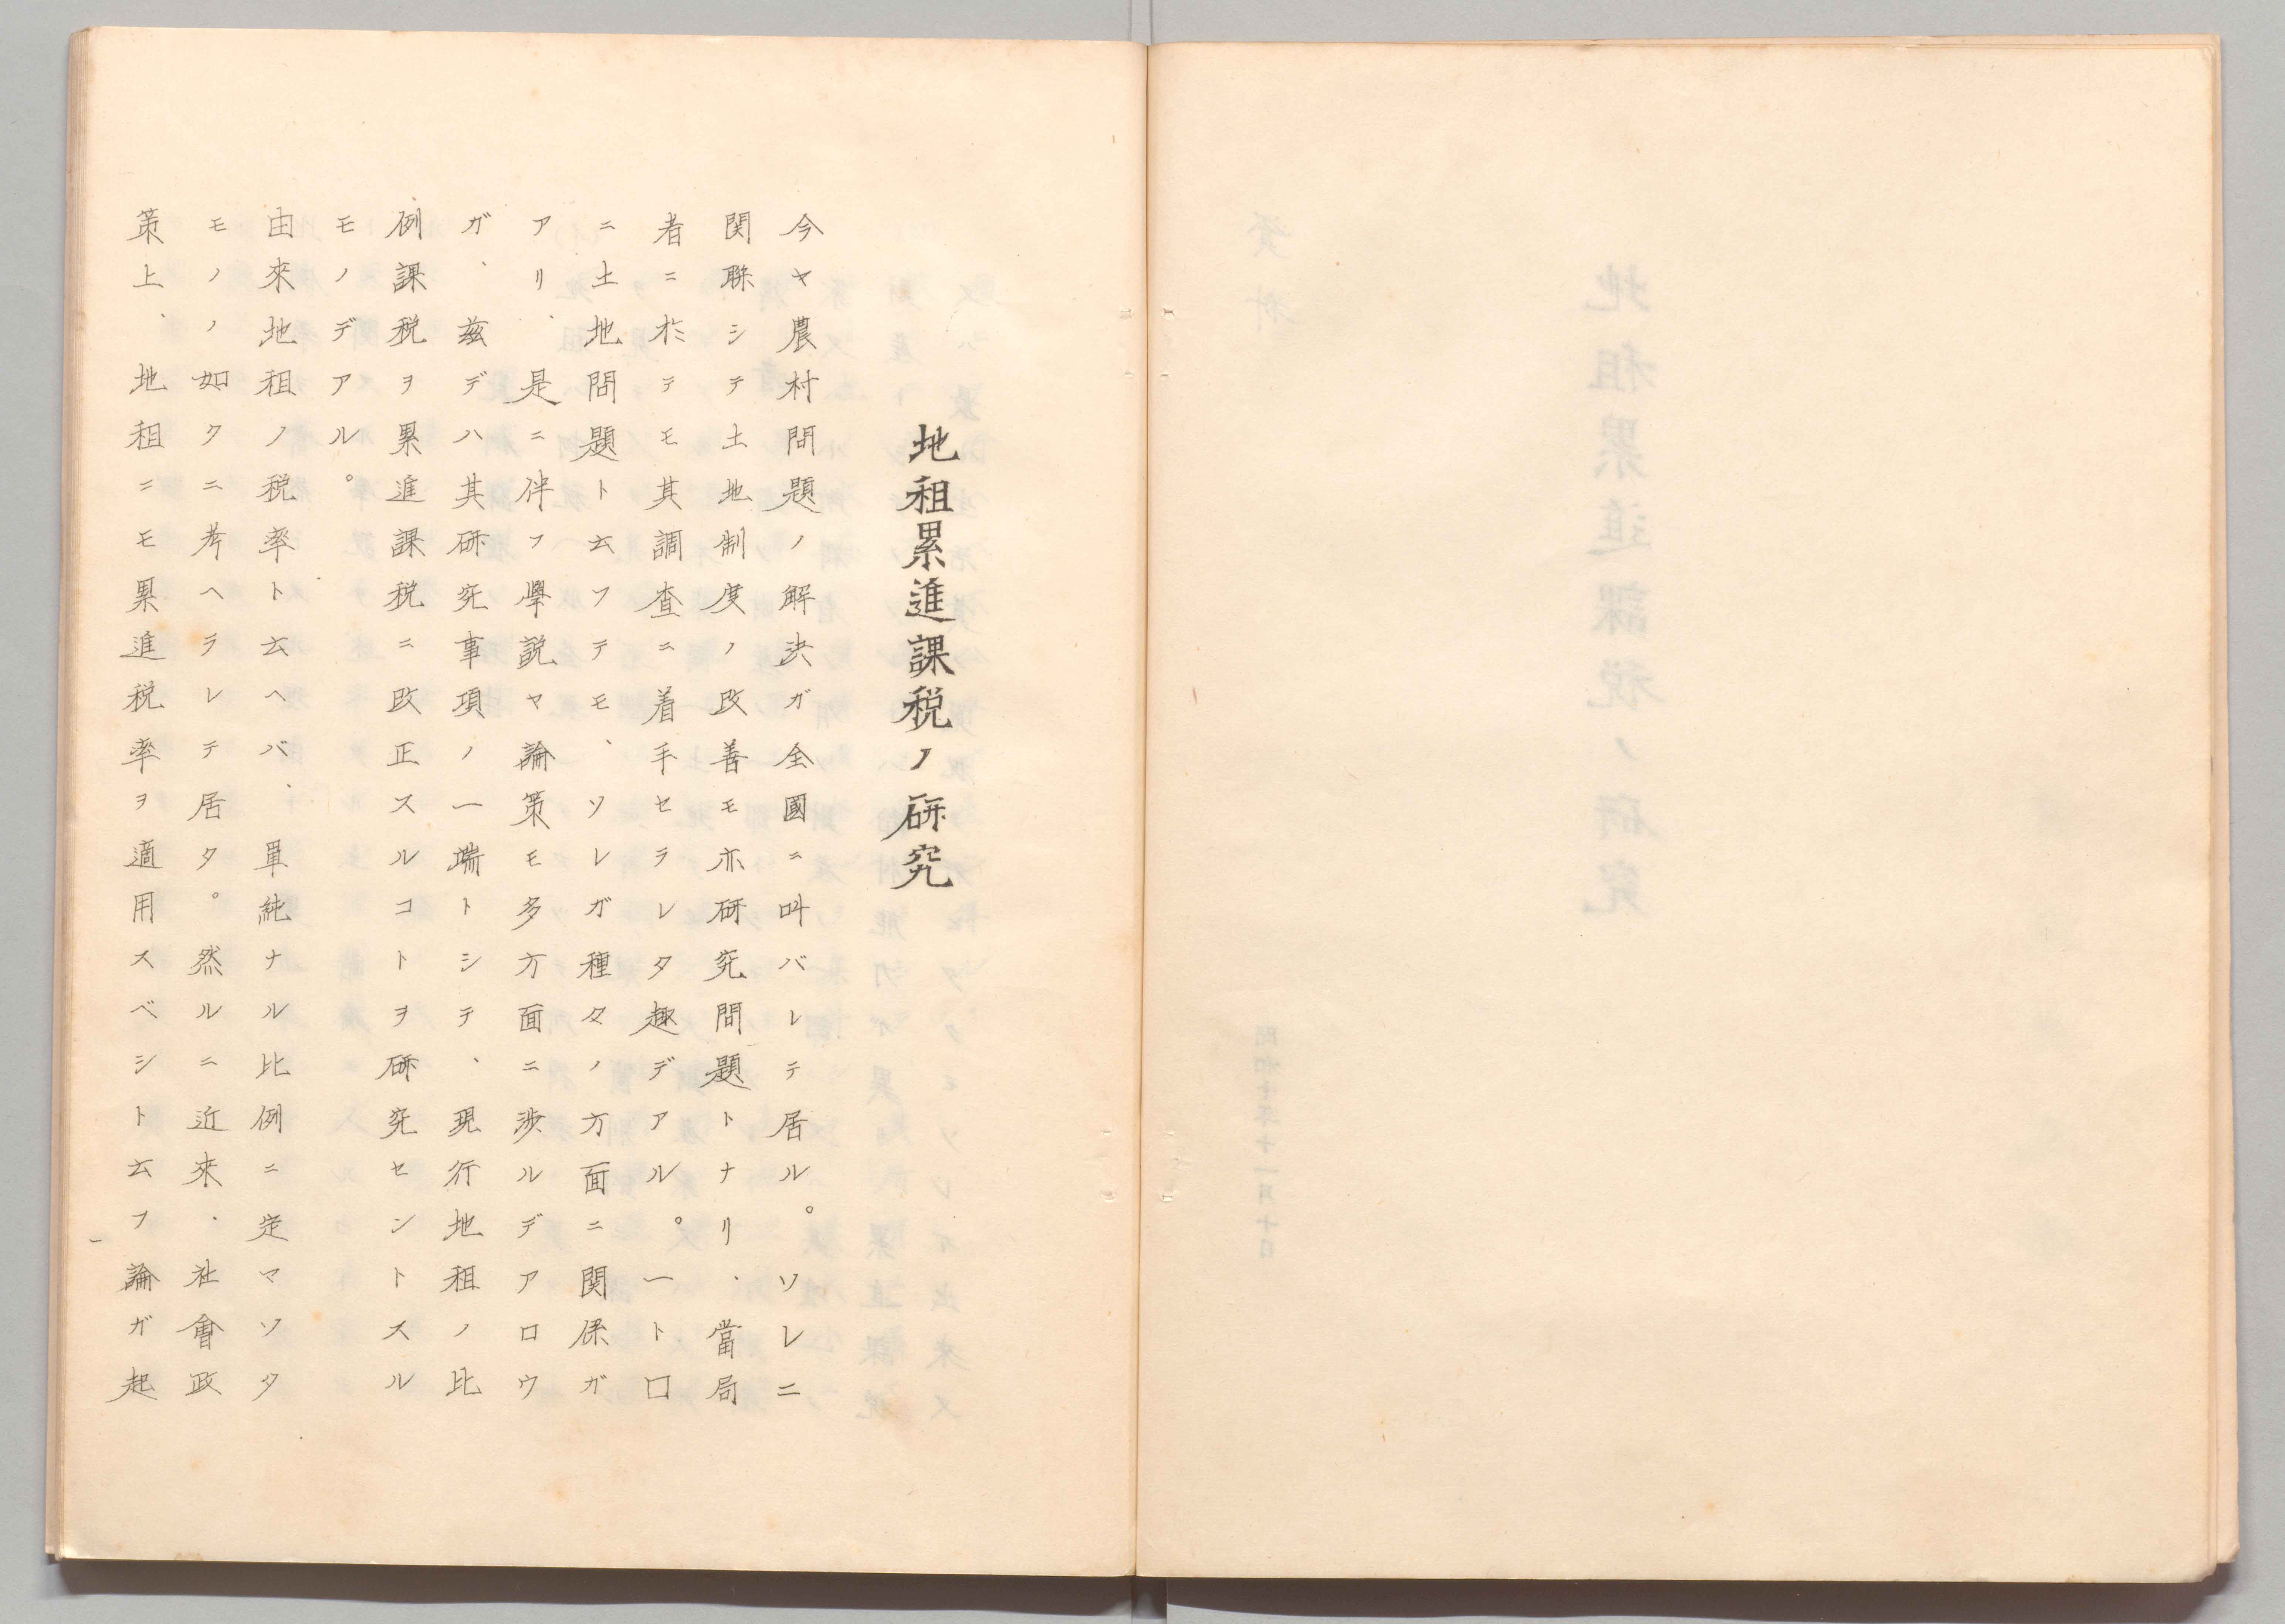 地租累進課税ノ研究
今ヤ農村問題ノ解決ガ全國ニ叫バレテ居ル。ソレニ
関聯シテ土地制度ノ改善モ亦研究問題トナリ、當局
者ニ於テモ其調査ニ着手セラレタ趣デアル。一ト口
ニ土地問題ト云フテモ、ソレガ種々ノ方面ニ関係ガ
アリ、是ニ伴フ學説ヤ論策モ多方面ニ渉ルデアロウ
ガ、茲デハ其研究事項ノ一端トシテ、現行地租ノ比
例課税ヲ累進課税ニ改正スルコトヲ研究セントスル
モノデアル。
由來地租ノ税率ト云ヘバ、單純ナル比例ニ定マツタ
モノノ如クニ考ヘラレテ居タ。然ルニ近來、社會政
策上、地租ニモ累進税率ヲ適用スベシト云フ論ガ起
一